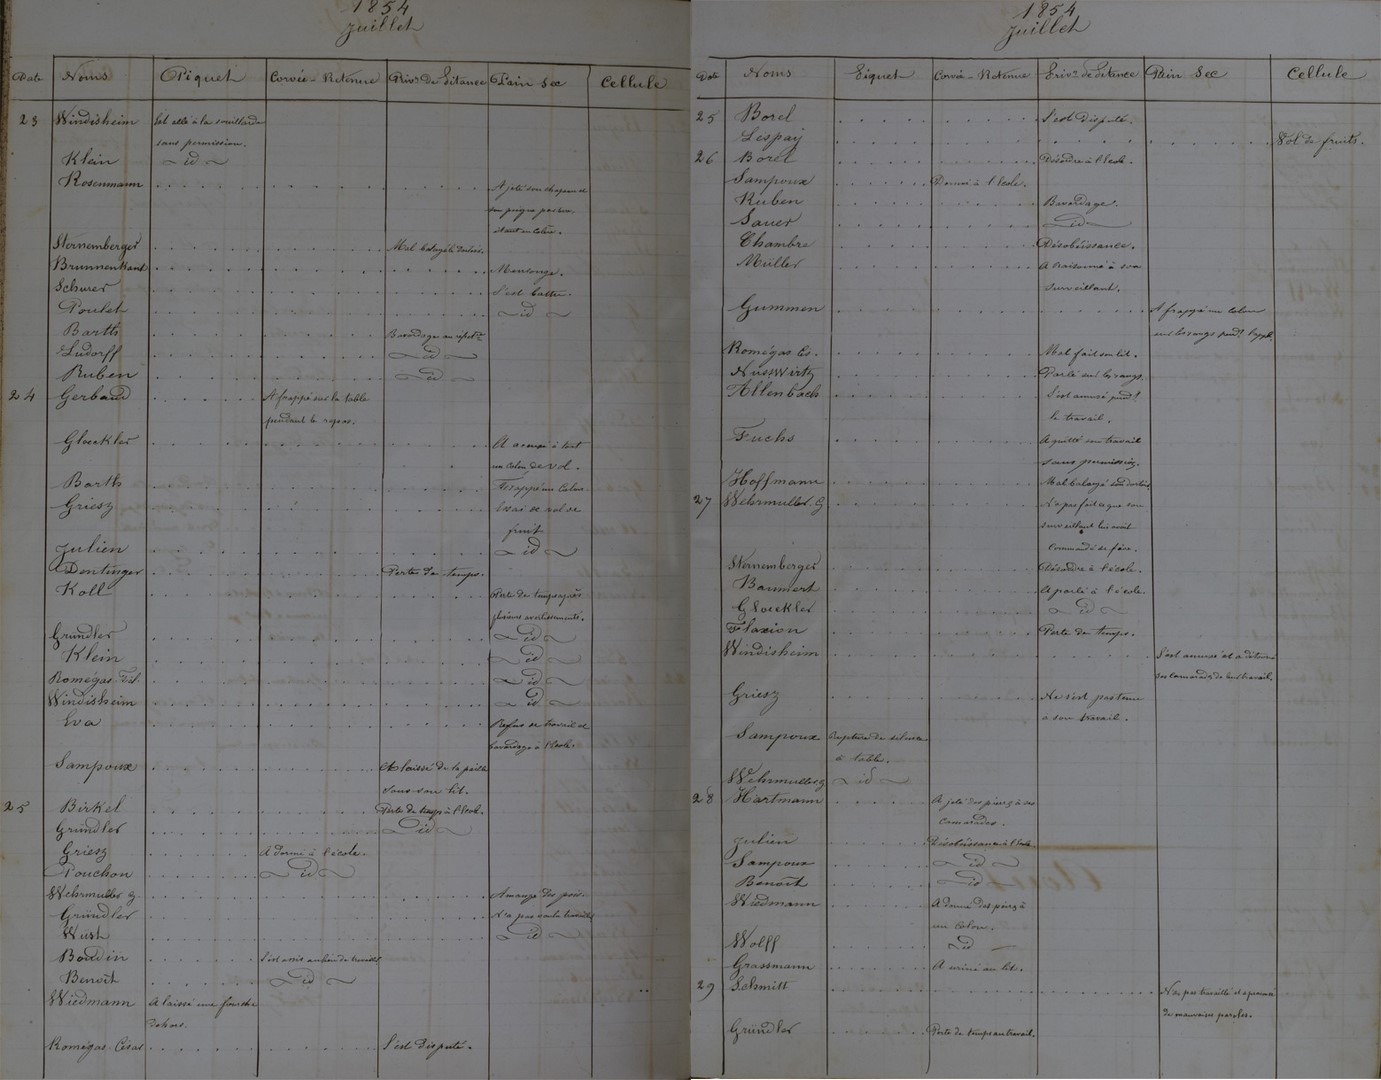 1854
Juillet
Date Noms Piquet Corvée - Retenue Priv.on de ditance Pain Sec Cellule
23 Windisheim Est allé à la
sans permission.
Klein id
Rosenmann A jeté son chapeau et
son peigne
étant en colère.
Sternemberger Mal balayé le dortoir.
Brunnenkant Mensonge.
Schurer S'est battu.
Poulet id
Barth Bavardage au réfect.re
Ludorff id
Ruben id
24 Gerbaud A frappé sur la table
pendant le repas.
Gloeckler A accusé à tort
un colon de vol.
Barth Frappé un Colon
Griesz Essai de vol de
fruit
Julien id
Dentinger Perte de temps.
Koll Perte de temps après
plusieurs avertissements.
Grundler id
Klein id
Romégas Fél. id
Windisheim id
Eva Refus de travail et
bavardage à l'école.
Sampoux A laissé de la paille
sous son lit.
25 Birkel Perte de temps à l'école.
Gründler id
Griesz A dormi à l'école.
Pouchon id
Wehrmuller G. A mangé des pois.
Gründler N'a pas voulu travailler
Wust id
Boudin S'est assis au lieu de travailler
Benoît id
Wiedmann A laissé une fourche
dehors.
Romégas César S'est disputé.
1854
Juillet
Date Noms Piquet Corvée - Retenue Priv.on de ditance Pain Sec Cellule
25 Borel S'est disputé.
Lespay Vol de fruits.
26 Borel Désordre à l'école.
Sampoux Dormi à l'école.
Ruben Bavardage.
Sauer id
Chambre Désobéissance.
Müller A raisonné à son
surveillant.
Gummen A frappé un colon
sur les rangs pend.t l'appel
Romégas Cés. Mal fait son lit.
Nusswirtz Parlé sur les rangs.
Allenbach S'est amusé pend.t
le travail.
Fuchs A quitté son travail
sans permission.
Hoffmann Mal balayé son dortoir
27 Wehrmuller G N'a pas fait ce que son
surveillant lui avait
commandé de faire.
Sternemberger Désordre à l'école.
Baumert A parlé à l'école
Gloeckler id
Flaxion Perte de temps.
Windisheim S'est amusé et a détourné
ses camarades de leur travail.
Griesz Ne s'est pas tenu
à son travail.
Sampoux Rupture de silence
à table.
Wehrmuller G id
28 Hartmann A jeté des pierres à ses
camarades.
Julien Désobéissance à l'école
Sampoux id
Benoît id
Wiedmann A donné des poings à
un colon.
Wolff id
Grassmann A uriné au lit.
29 Schmitt N'a pas travaillé et a prononcé
de mauvaises paroles.
Gründler Perte de temps au travail.